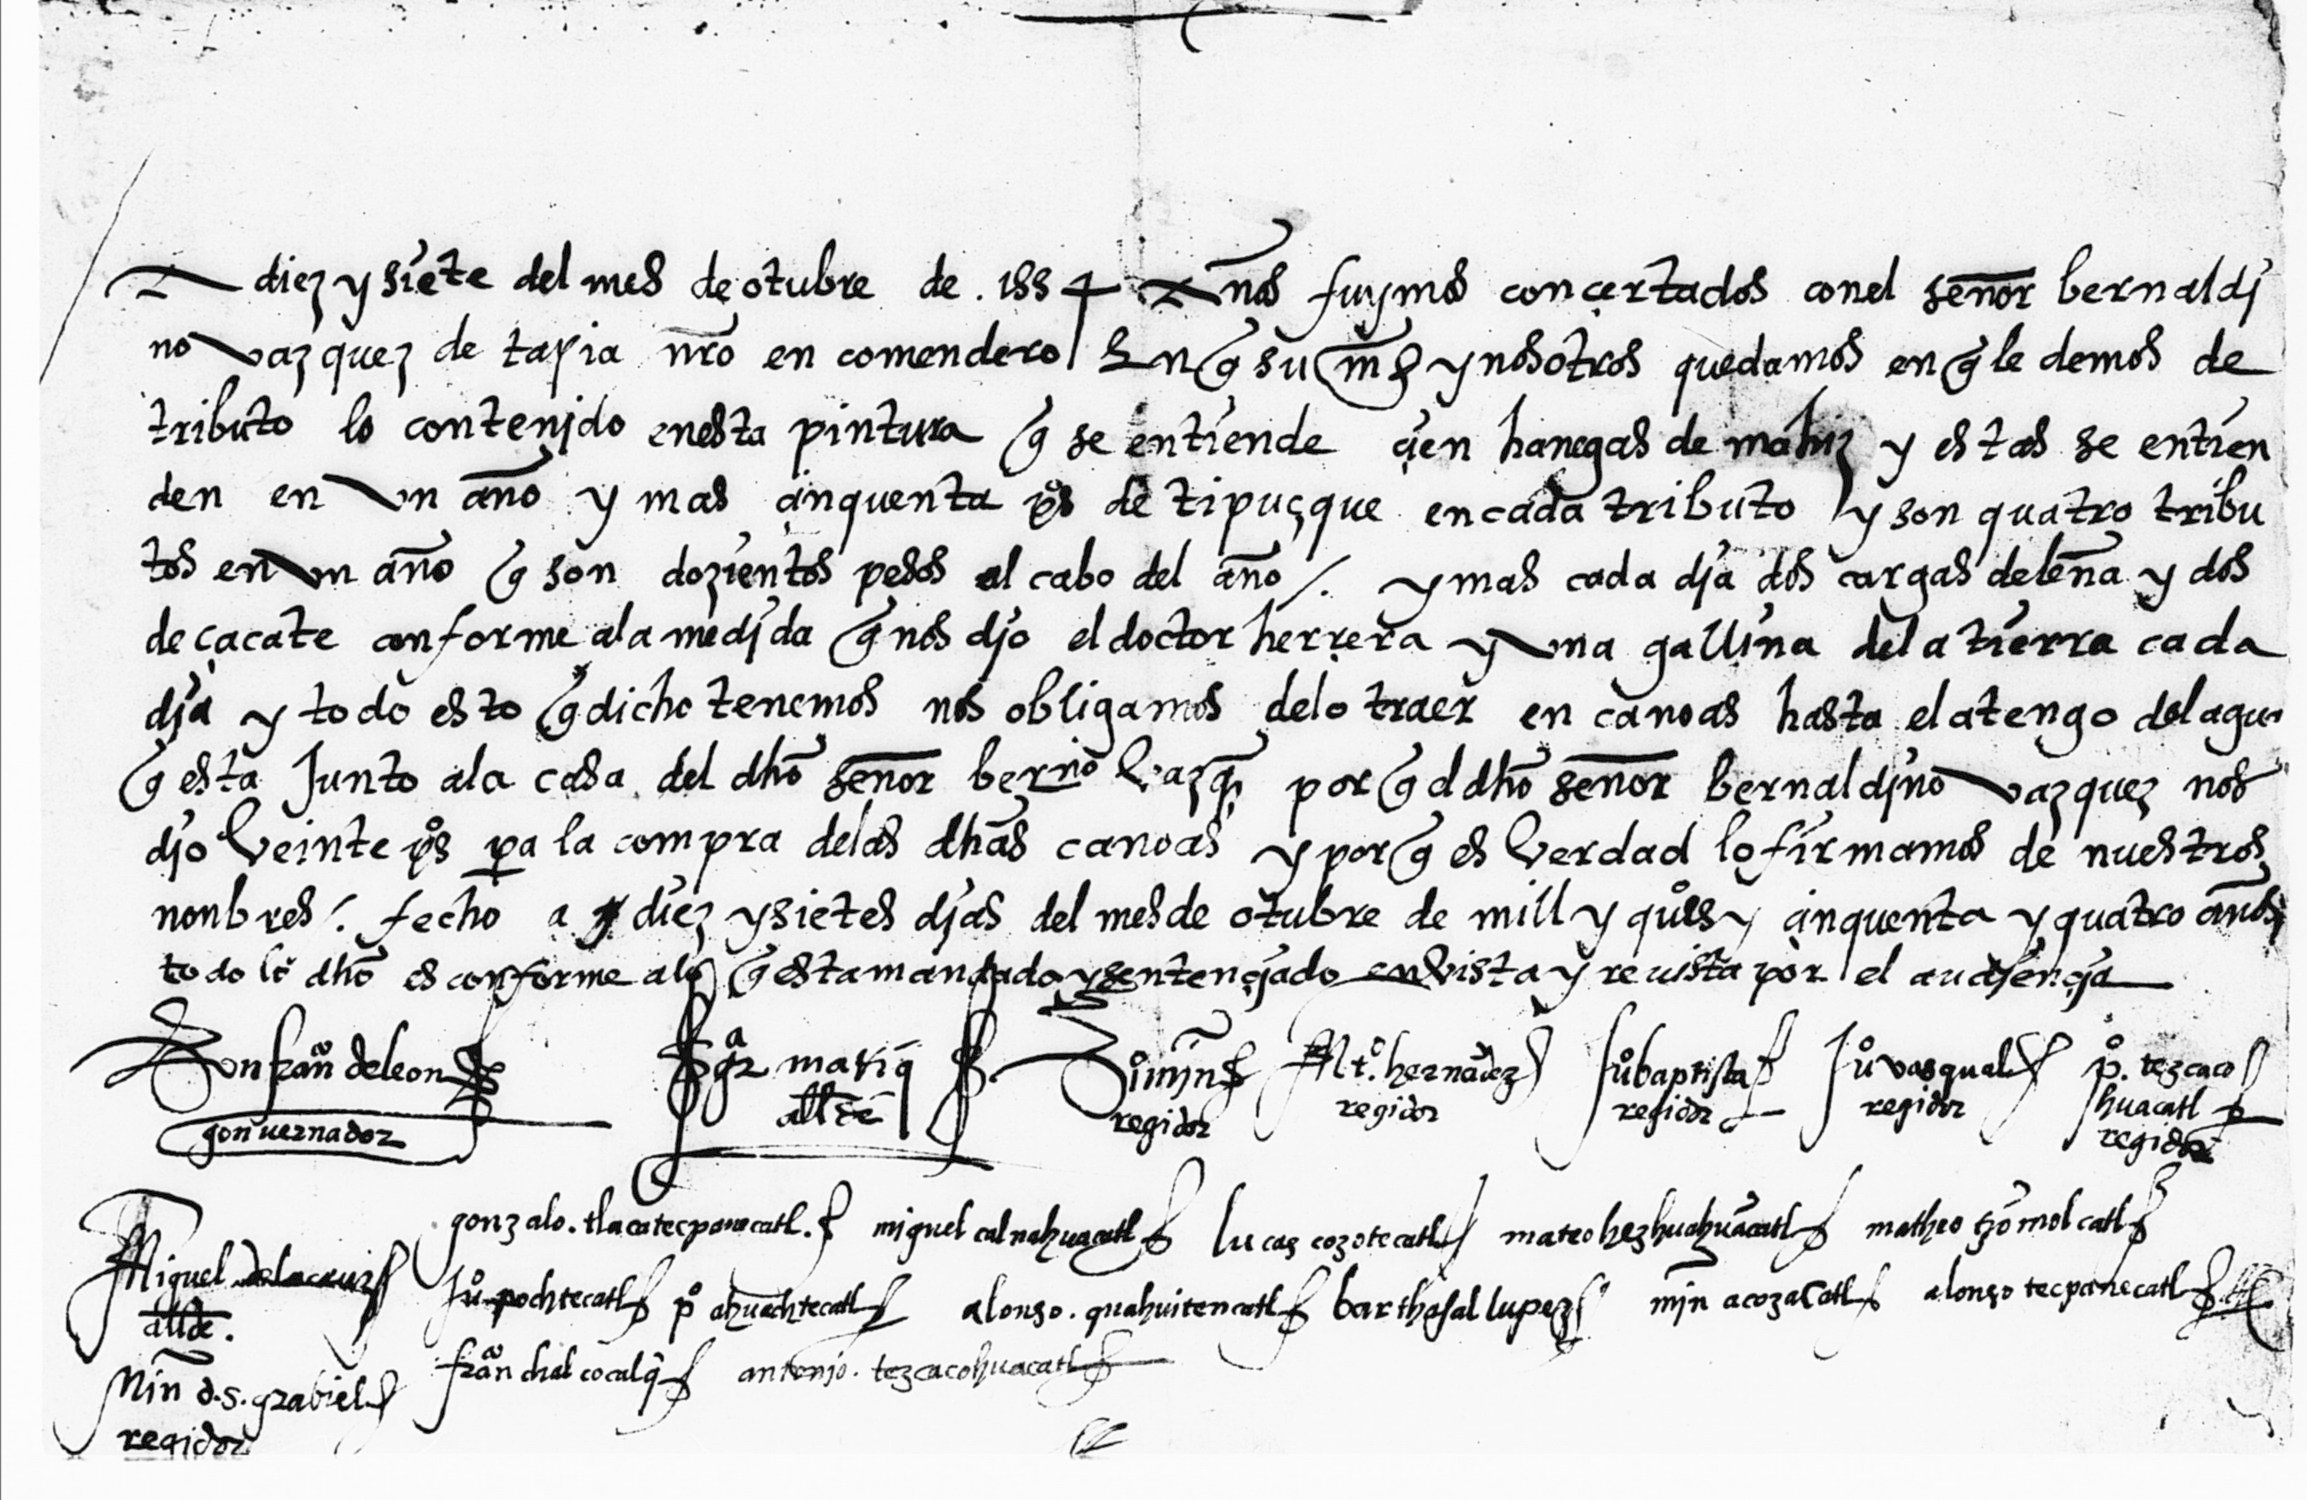 A diez y siete del mes de otubre de .1554 años fuymos conçertados conel señor bernaldj
no vazquez de tapia nr̄o en comendero / En q̃ su m̃d y nosotros quedamos en q̃ le demos de
tributo lo contenjdo enesta pintura q̃ se entiende çien hanegas de mahiz y estas se entien
den en vn año y mas çinquenta p̊s de tipuçque encada tributo / y son quatro tribu
tos en vn año q̃ son dozientos pesos al cabo del año /. y mas cada dja dos cargas deleña y dos
de çacate conforme ala medjda q̃ nos djo el doctor herrera y vna gallina dela tierra cada
dja y todo esto q̃ dicho tenemos nos obligamos delo traer en canoas hasta elatengo del agua
q̃ esta Junto ala casa del dho señor berno vazq̃z por q̃ el dho señor bernaldjno vazquez nos
djo veinte p̊s pa la compra delas dhas canoas y por q̃ es verdad lo firmamos de nuestros
nonbres /. fecho a diez ysietes djas del mes de otubre de mill y quos y çinquenta y quatro años
todo lo dho es conforme alo q̃ esta mandado y sentençjado en vista y reuista por el audjençja
Don franco deleon
gonuernador
gar maxiq
allde
Do mjn
regidor
At̊. hernãdez
regidor
Jů baptista
regidor
Jů vasqual
regidor
p̊. tezcaco
huacatl
regidor
Miguel delacruz
allde.
gonzalo. tlacatecpanecatl. miguel calnahuacatl lucas cozotecatl mateo hezhuahuãcatl matheo tzõmolcatl
Jů pochtecatl p̊ ahuachtecatl alonso. quahuitencatl barthasal lupez mjn acozacatl alonso tecpanecatl
franco chalcocalq̃ antonjo. tezcacohuacatl
Min d.s. grabiel
regidor